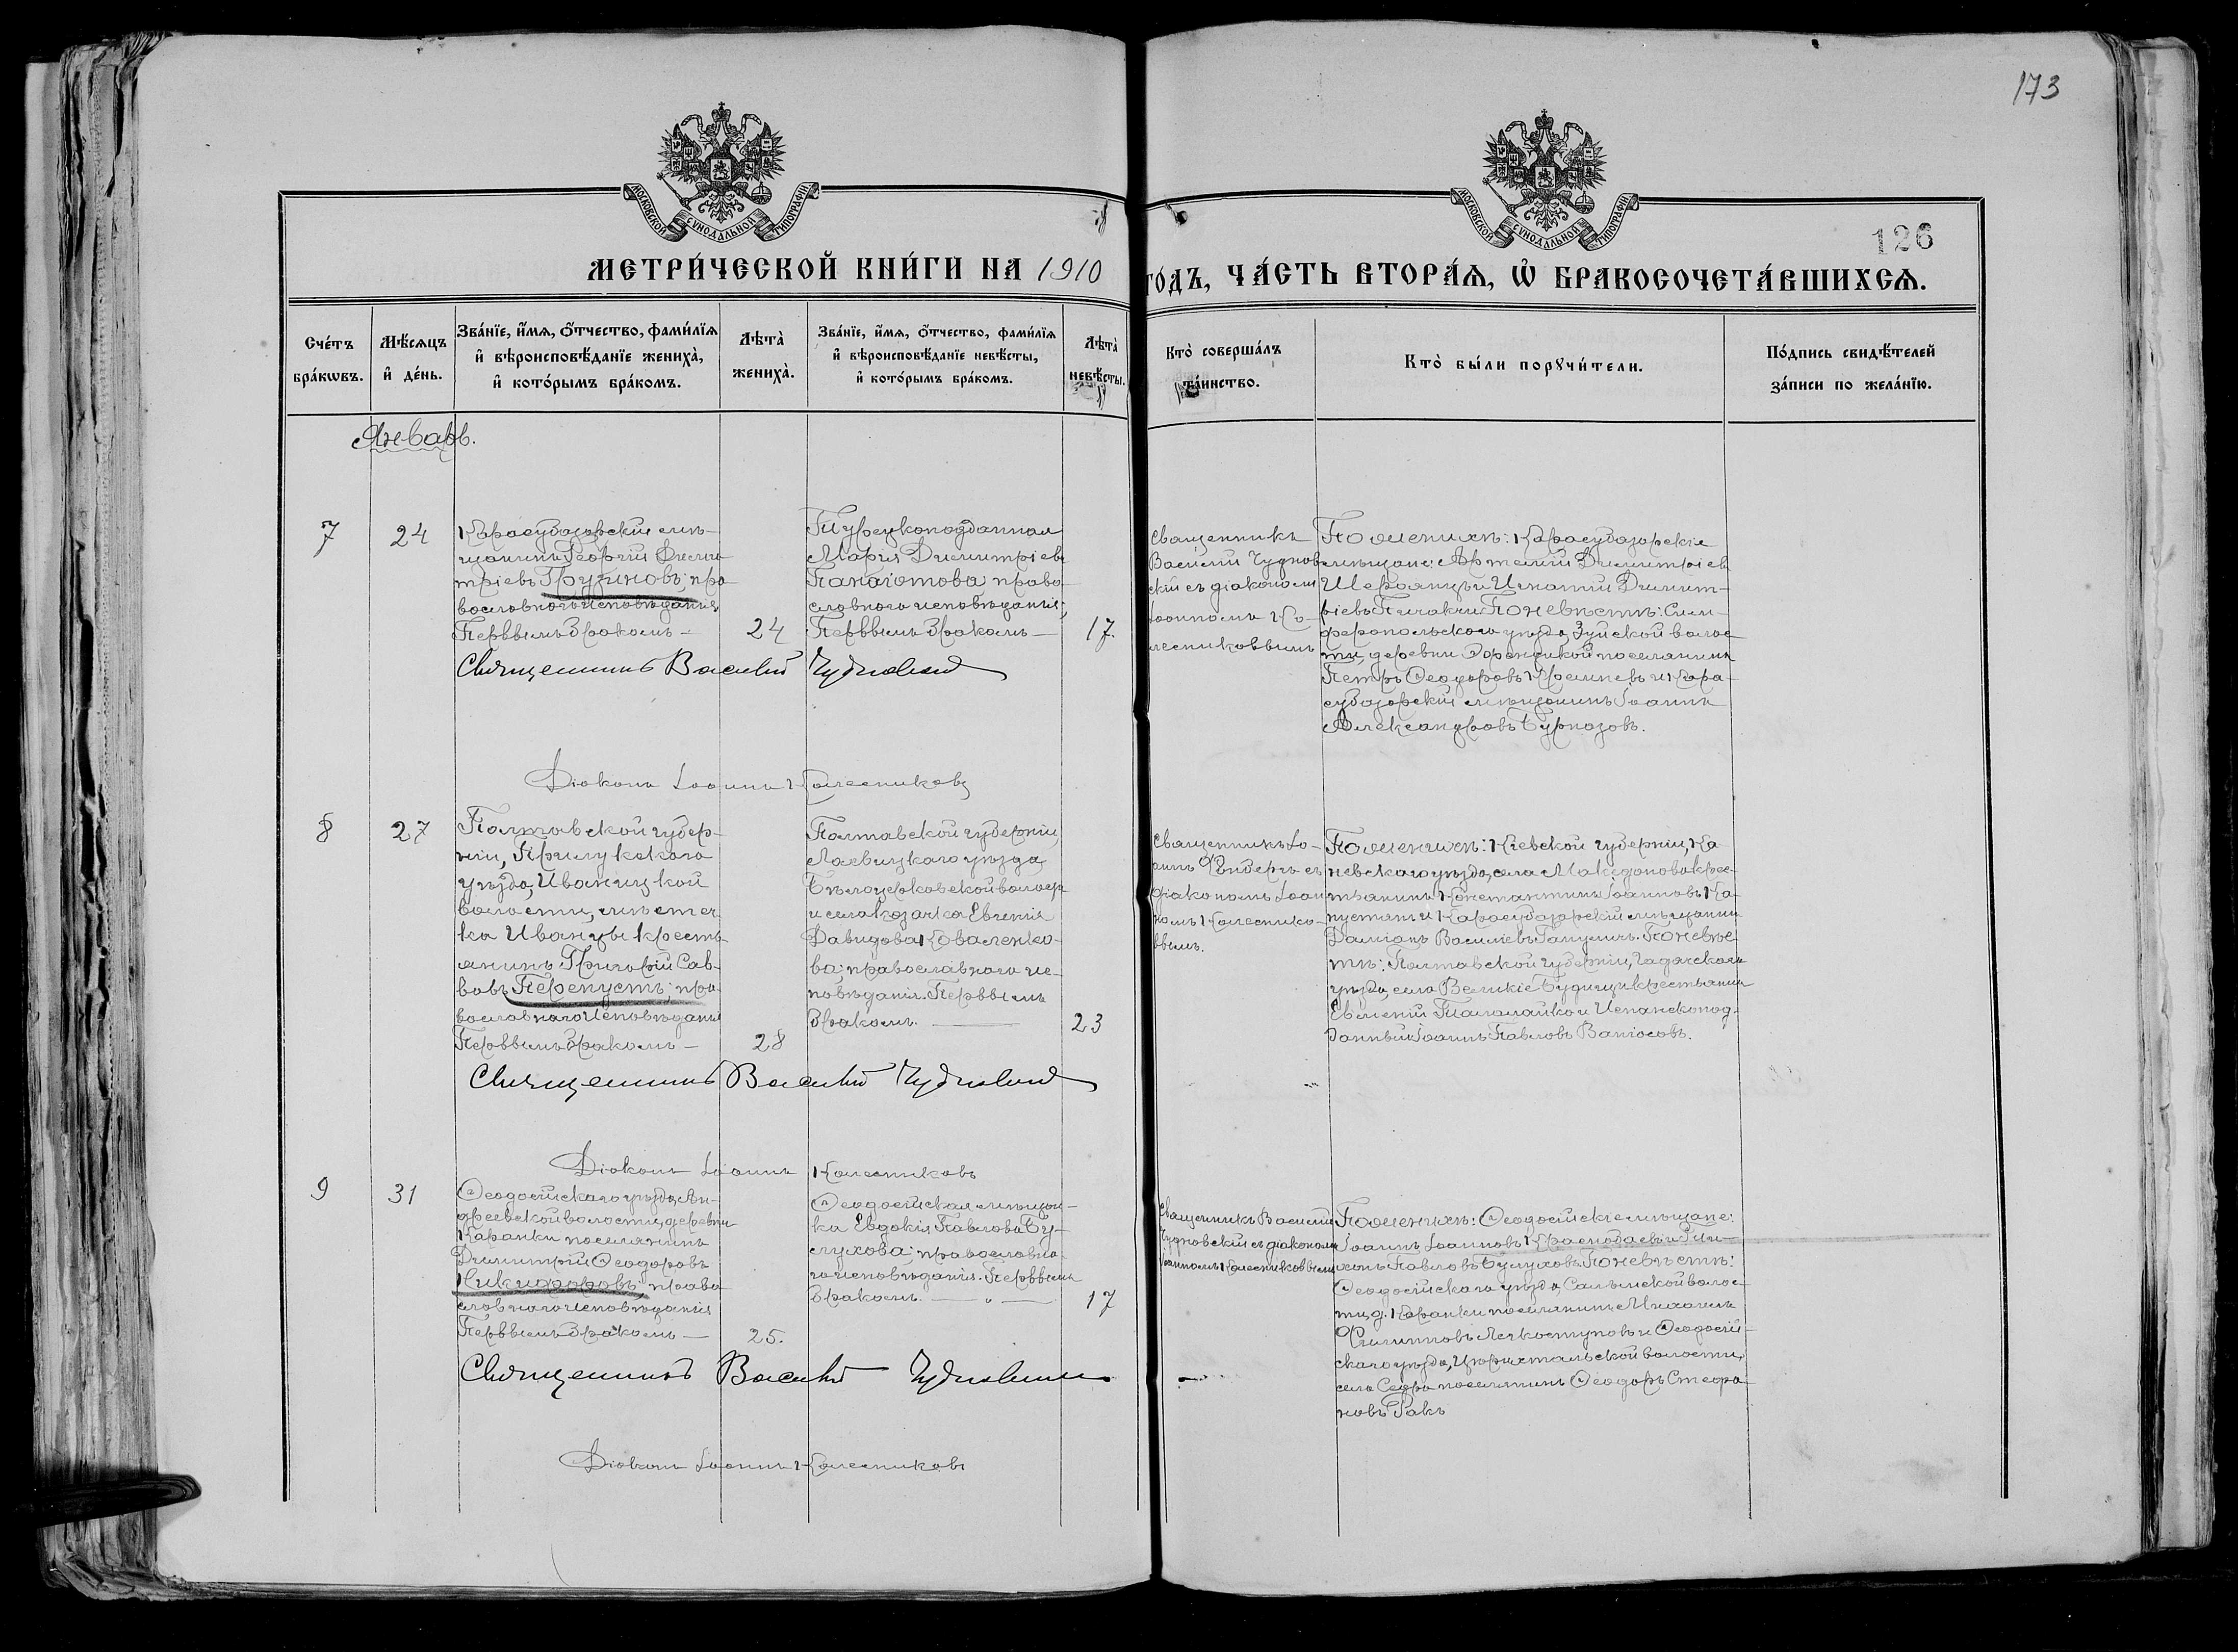 173
МОСКОВСКОЙ СУНОДАЛЬНОЙ ТИПОГРАФІИ
МОСКОВСКОЙ СУНОДАЛЬНОЙ ТИПОГРАФІИ
126
МЕТРИ́ЧЕСКОЙ КНИ́ГИ НА 1910 ГО́ДЪ, ЧА́СТЬ ВТОРА́Ѧ, Ѡ҆ БРАКОСОЧЕТА́ВШИХСѦ.
Сче́тъ
бра́кѡвъ.
Мѣ́сѧцъ
и҆ де́нь.
Зва́нїе, и҆́мѧ, ѻ҆́тчество, фами́лїѧ
и҆ вѣроисповѣ́данїе жениха̀,
и҆ кото́рымъ бра́комъ.
Лѣта̀
жениха̀.
Зва́нїе, и҆́мѧ, ѻ҆́тчество, фами́лїѧ
и҆ вѣроисповѣ́данїе невѣ́сты,
и҆ кото́рымъ бра́комъ.
Лѣта̀
невѣ́сты.
Кто̀ соверша́лъ
та́инство.
Кто̀ бы́ли порꙋчи́тели.
По́дпись свидѣ́телей
за́писи по жела́нїю.
Январь.
7
24
Карасубазарскій мѣ-
щанинъ Георгій Димит-
тріевъ Грузиновъ; пра-
вославнаго исповѣданія
Первымъ бракомъ —
24
Турецкоподданная
Марія Димитріева
Панаіотова; право-
славнаго исповѣданія;
Первымъ бракомъ —
17.
Священникъ
Василій Чуднов-
скій съ діакономъ
Іоанномъ Ко-
лесниковымъ
По женихѣ: Карасубазарскіе
мѣщане: Артемій Димитріевъ
и Игнатій Димит-
ріевъ По невѣстѣ: Сим-
феропольскаго уѣзда, Зуйской волос-
ти, деревни поселянинъ
Петръ Ѳеодоровъ и Кара-
субазарскій мѣщанинъ Іоаннъ
Александровъ Бурназовъ.
Священникъ Василій Чудновскій
Діаконъ Іоаннъ Колесниковъ
8
27
Полтавской губер-
ніи, Прилукскаго
уѣзда, Иваницкой
волости, мѣстеч-
ка Иваницы кресть-
янинъ Григорій Сав-
вовъ Перепустъ; пра-
вославнаго исповѣданія
Первымъ бракомъ —
28
Полтавской губерніи,
Лохвицкаго уѣзда,
Бѣлоцерковской волости
и села козачка Евгенія
Давидова Коваленко-
ва; православнаго ис-
повѣданія. Первымъ
бракомъ. —
23
Священникъ Іо-
аннъ съ
діакономъ Іоан-
номъ Колеснико-
вымъ.
По женихѣ: Кіевской губерніи, Ка-
невскаго уѣзда, села Македоновка крес-
тьянинъ Константинъ Іоанновъ Ка-
пустянъ и Карасубазарскій мѣщанинъ
Даміанъ Василіевъ По невѣс-
тѣ: Полтавской губерніи, Гадячскаго
уѣзда, села Великіе Будищи крестьянинъ
Евменій Таламайко и Испанскопод-
данный Іоаннъ Павловъ
Священникъ Василій Чудновскій
Діаконъ Іоаннъ Колесниковъ
9
31
Ѳеодосійскаго уѣзда, Ан-
дреевской волости, деревни
Каранки поселянинъ
Димитрій Ѳеодоровъ
Никифоровъ; право-
славнаго исповѣданія
Первымъ бракомъ —
25.
Ѳеодосійская мѣщан-
ка Евдокія Павлова Бу-
слухова; православна-
го исповѣданія. Первымъ
бракомъ. — " —
17
Священникъ Василій
Чудновскій съ діакономъ
Іоанномъ Колесниковымъ
По женихѣ: Ѳеодосійскіе мѣщане:
Іоаннъ Іоанновъ и Ти-
хонъ Павловъ По невѣстѣ:
Ѳеодосійскаго уѣзда, Салынской волос-
ти, д. Каранки поселянинъ Михаилъ
Филипповъ Легкоступовъ и Ѳеодосій-
скаго уѣзда, Цюрихтальской волости,
села поселянинъ Ѳеодоръ Стефа-
новъ Гакъ
Священникъ Василій Чудновскій
Діаконъ Іоаннъ Колесниковъ